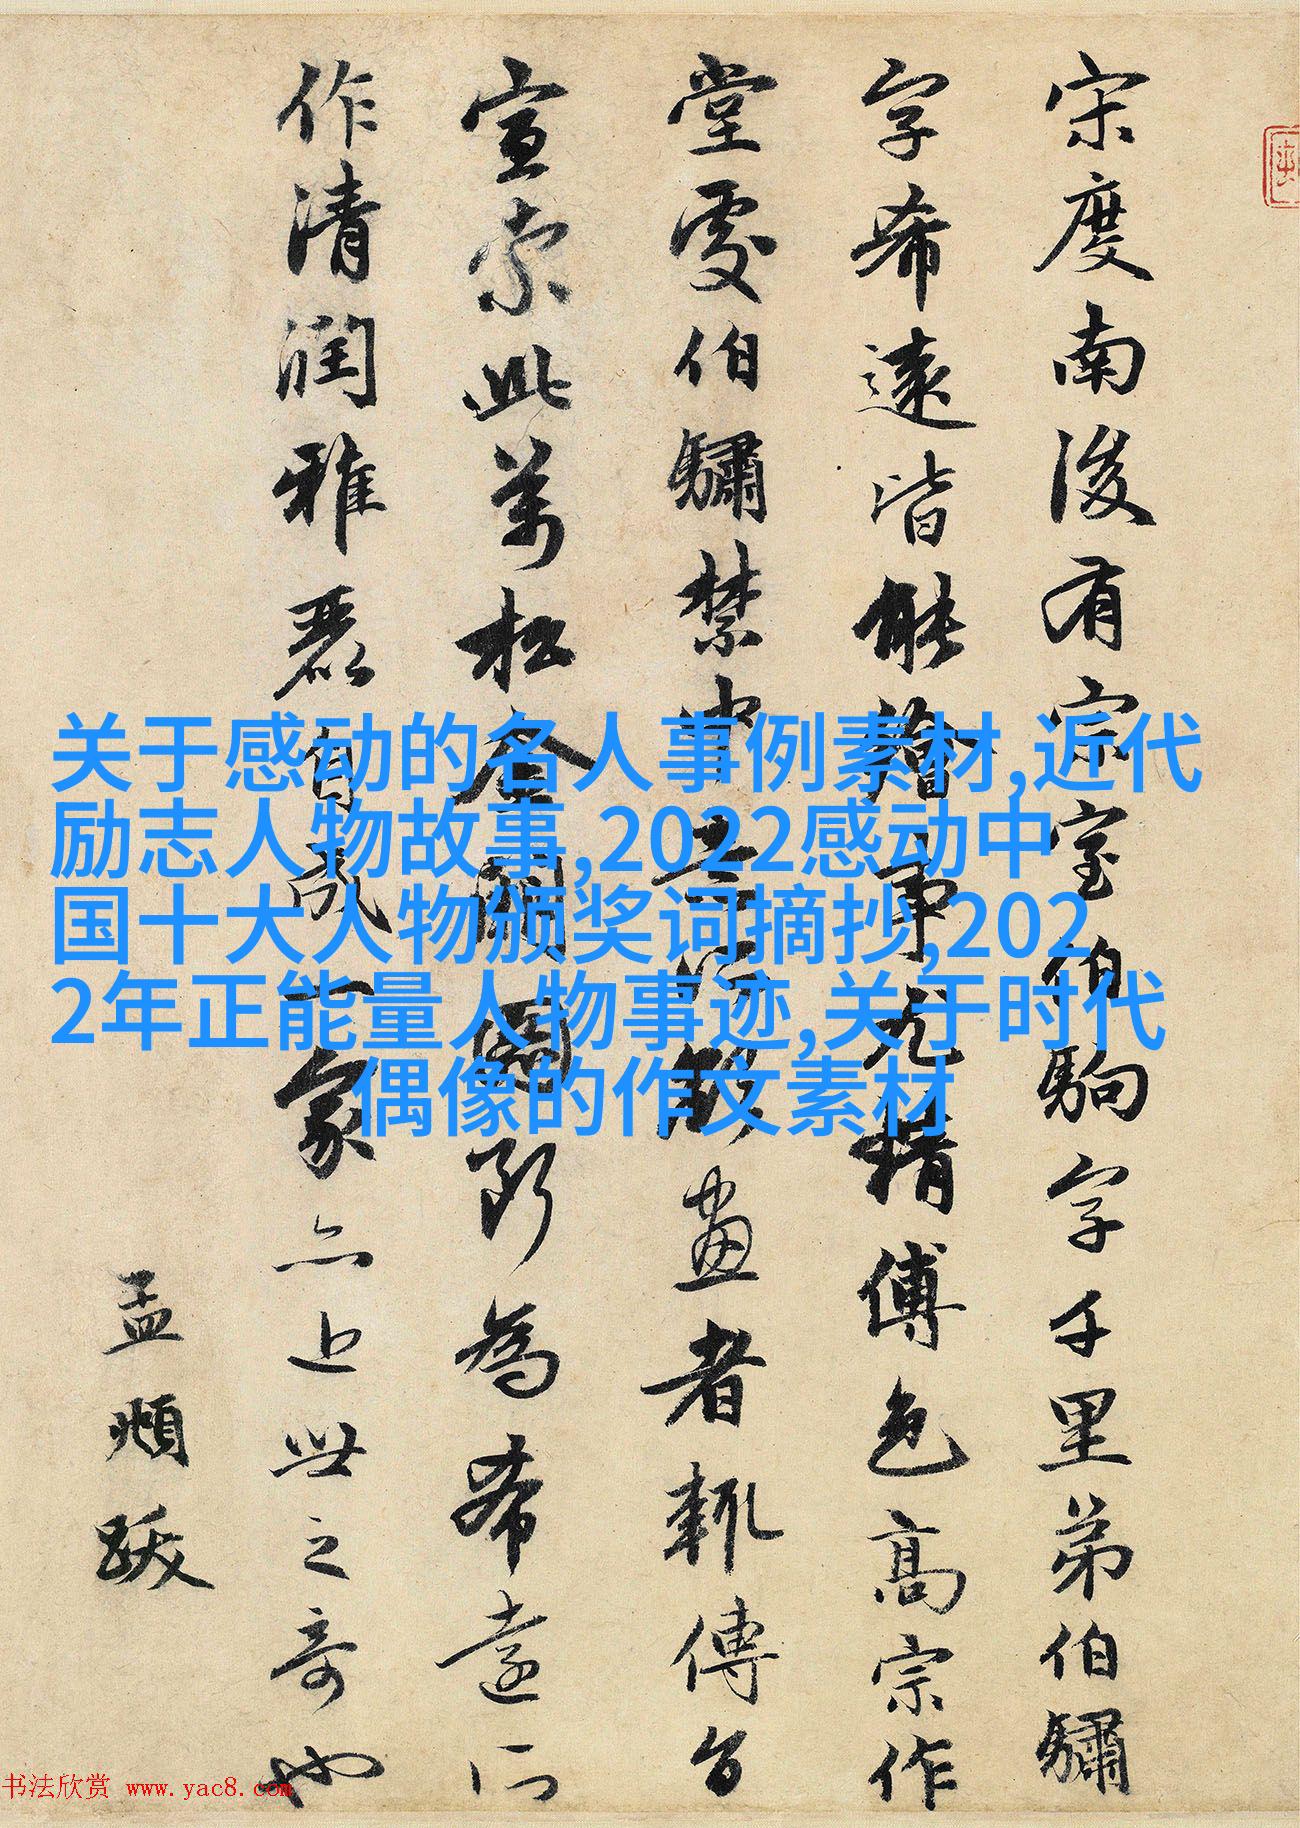 宋度南後有宗室伯駒字千里弟伯驌
字希遠皆能繪事尤精傅色高宗作
堂處伯驌禁中
畫者輒傳
宣索此萬松金闕圖所為希遠
作清潤雅麗自成一家亦近世之奇也
孟頫跋
关于感动的名人事例素材,近代
励志人物故事,2022感动中
国十大人物颁奖词摘抄,202
2年正能量人物事迹,关于时代
偶像的作文素材
书法欣赏 www.yac8.com